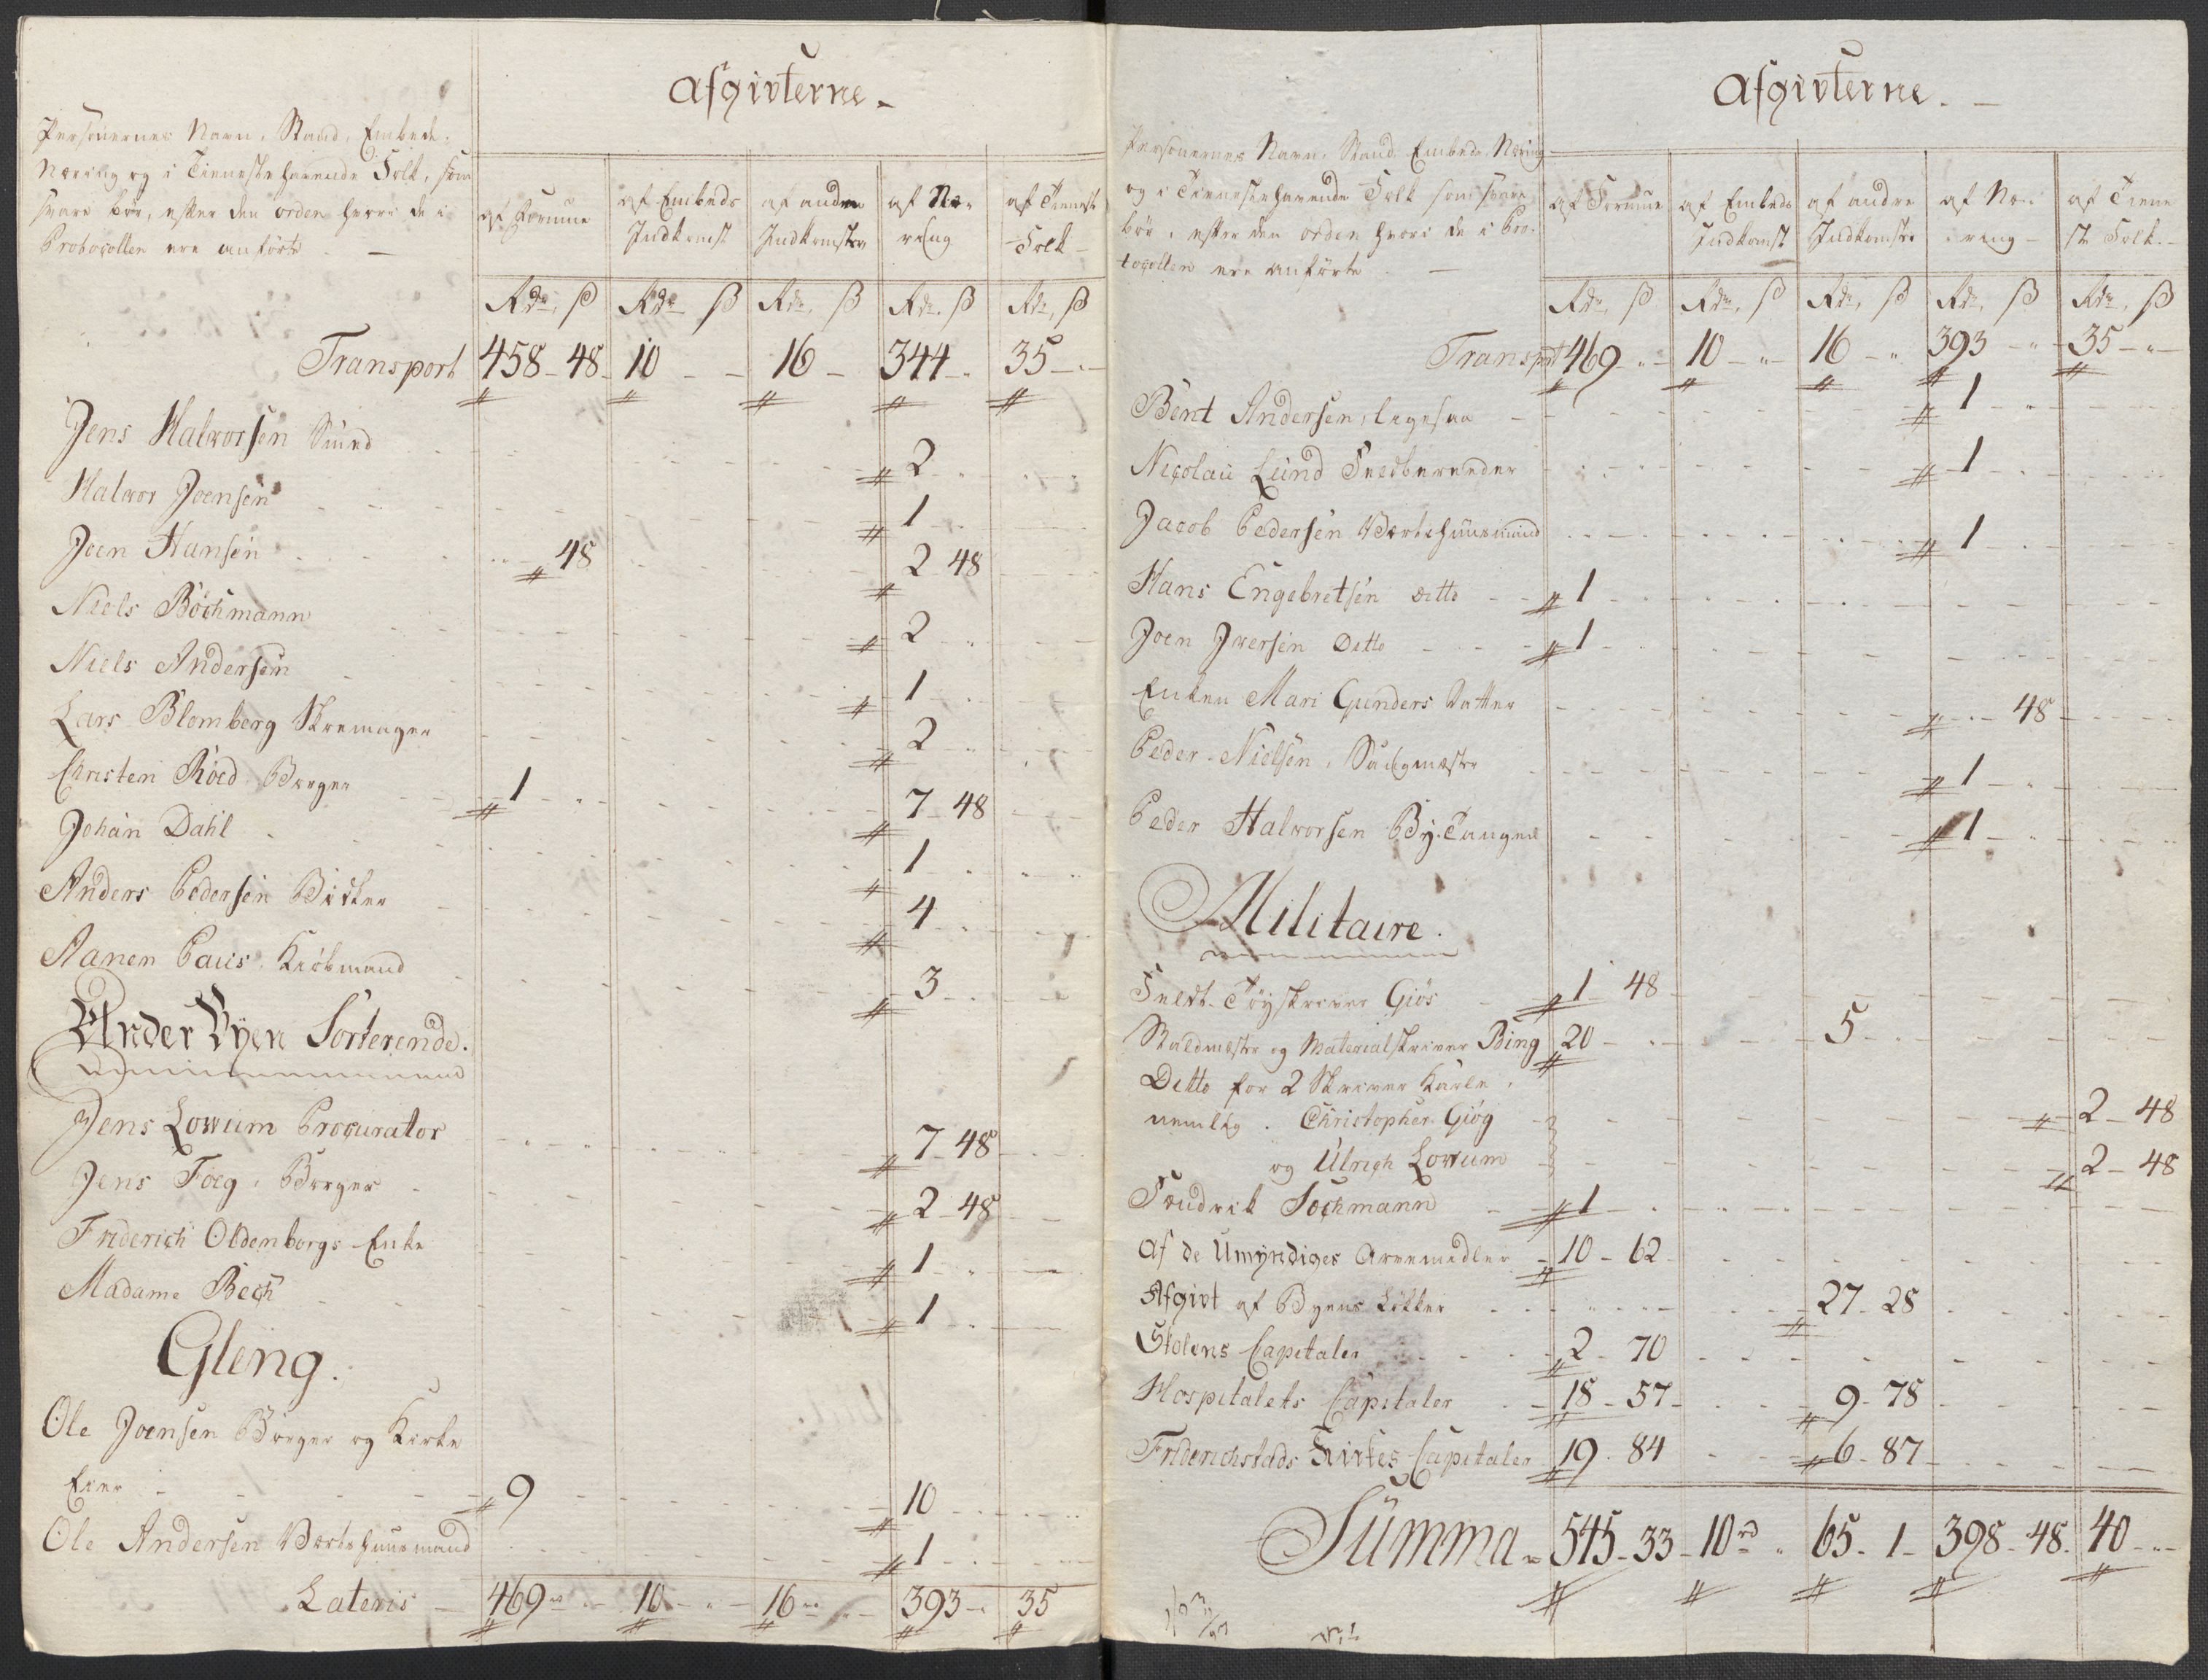 Afgivterne
Personernes Navn, Stand, Embede,
Næring og i Tieneste havende Folk, som
svare bør, efter den orden hvori de i
Protocollen ere anførte —
af Formue
af Embeds Indkomst
af andre Indkomster
af Næring
af Tieneste Folk
Rdr. ß Rdr. ß Rdr. ß Rdr. ß Rdr. ß
Transport 458 - 48 - 10 - - 16 - 344 - 35 - -
Jens Halvorsen Smed 2
Halvor Joensen 1
Joen Hansen 48 2 - 48
Niels Böchmann 2
Niels Andersen 1
Lars Blomberg Skomager 2
Christen Röed Borger 1 7 - 48
Johan Dahl 1
Anders Pedersen 4
Aanen Paus Kiöbmand 3
Under Byen Sorterende.
Jens Lowum Procurator 7 - 48
Jens Foeg, Borger 2 - 48
Friderich Oldenborgs Enke 1
Madame Bech 1
Gleng.
Ole Joensen Borger og Kirke
Eier 9 10
Ole Andersen Værtshuusmand 1
Lateris 469 10 16 393 35
Afgivterne. —
Personernes Navn, Stand, Embede, Næring
og i Tieneste havende Folk som svare
bør, efter den orden hvori de i Pro-
tocollen ere anførte —
af Formue
af Embeds Indkomst
af andre Indkomster
af Næring
af Tiene ste Folk
Rdr. ß Rdr. ß Rdr. ß Rdr. ß Rdr. ß
Transport 469 - 10 - 16 - 393 - 35 -
Bent Andersen, ligesaa 1
Nicolau Lund Feldbereder 1
Jacob Pedersen Værtshuusmand 1
Hans Engebretsen ditto 1
Joen Iversen Ditto 1
Enken Mari Gunders Datter 48
Peder Nielsen, Saugmester 1
Peder Halvorsen By-Tangen 1
Militaire.
Feldt-Töyskriver Giös 1 48
Staldmester og Materialskriver Bing 20 5
Ditto for 2 Skriver Karle,
nemlig. Christopher Giög 2 - 48
og Ulrich Lowum 2 - 48
Fendrik Sochmann 1
Af de Umyndiges Arvemidler 10 - 62
Afgivt af Byens Løkker 27 - 28
Skolens Capitaler 2 - 70
Hospitalets Capitaler 18 - 57 9 - 78
Friderichstads Kirkes Capitaler 19 - 84 6 - 87
Summa 545 - 33 - 10 65 - 1 - 398 - 48 - 40